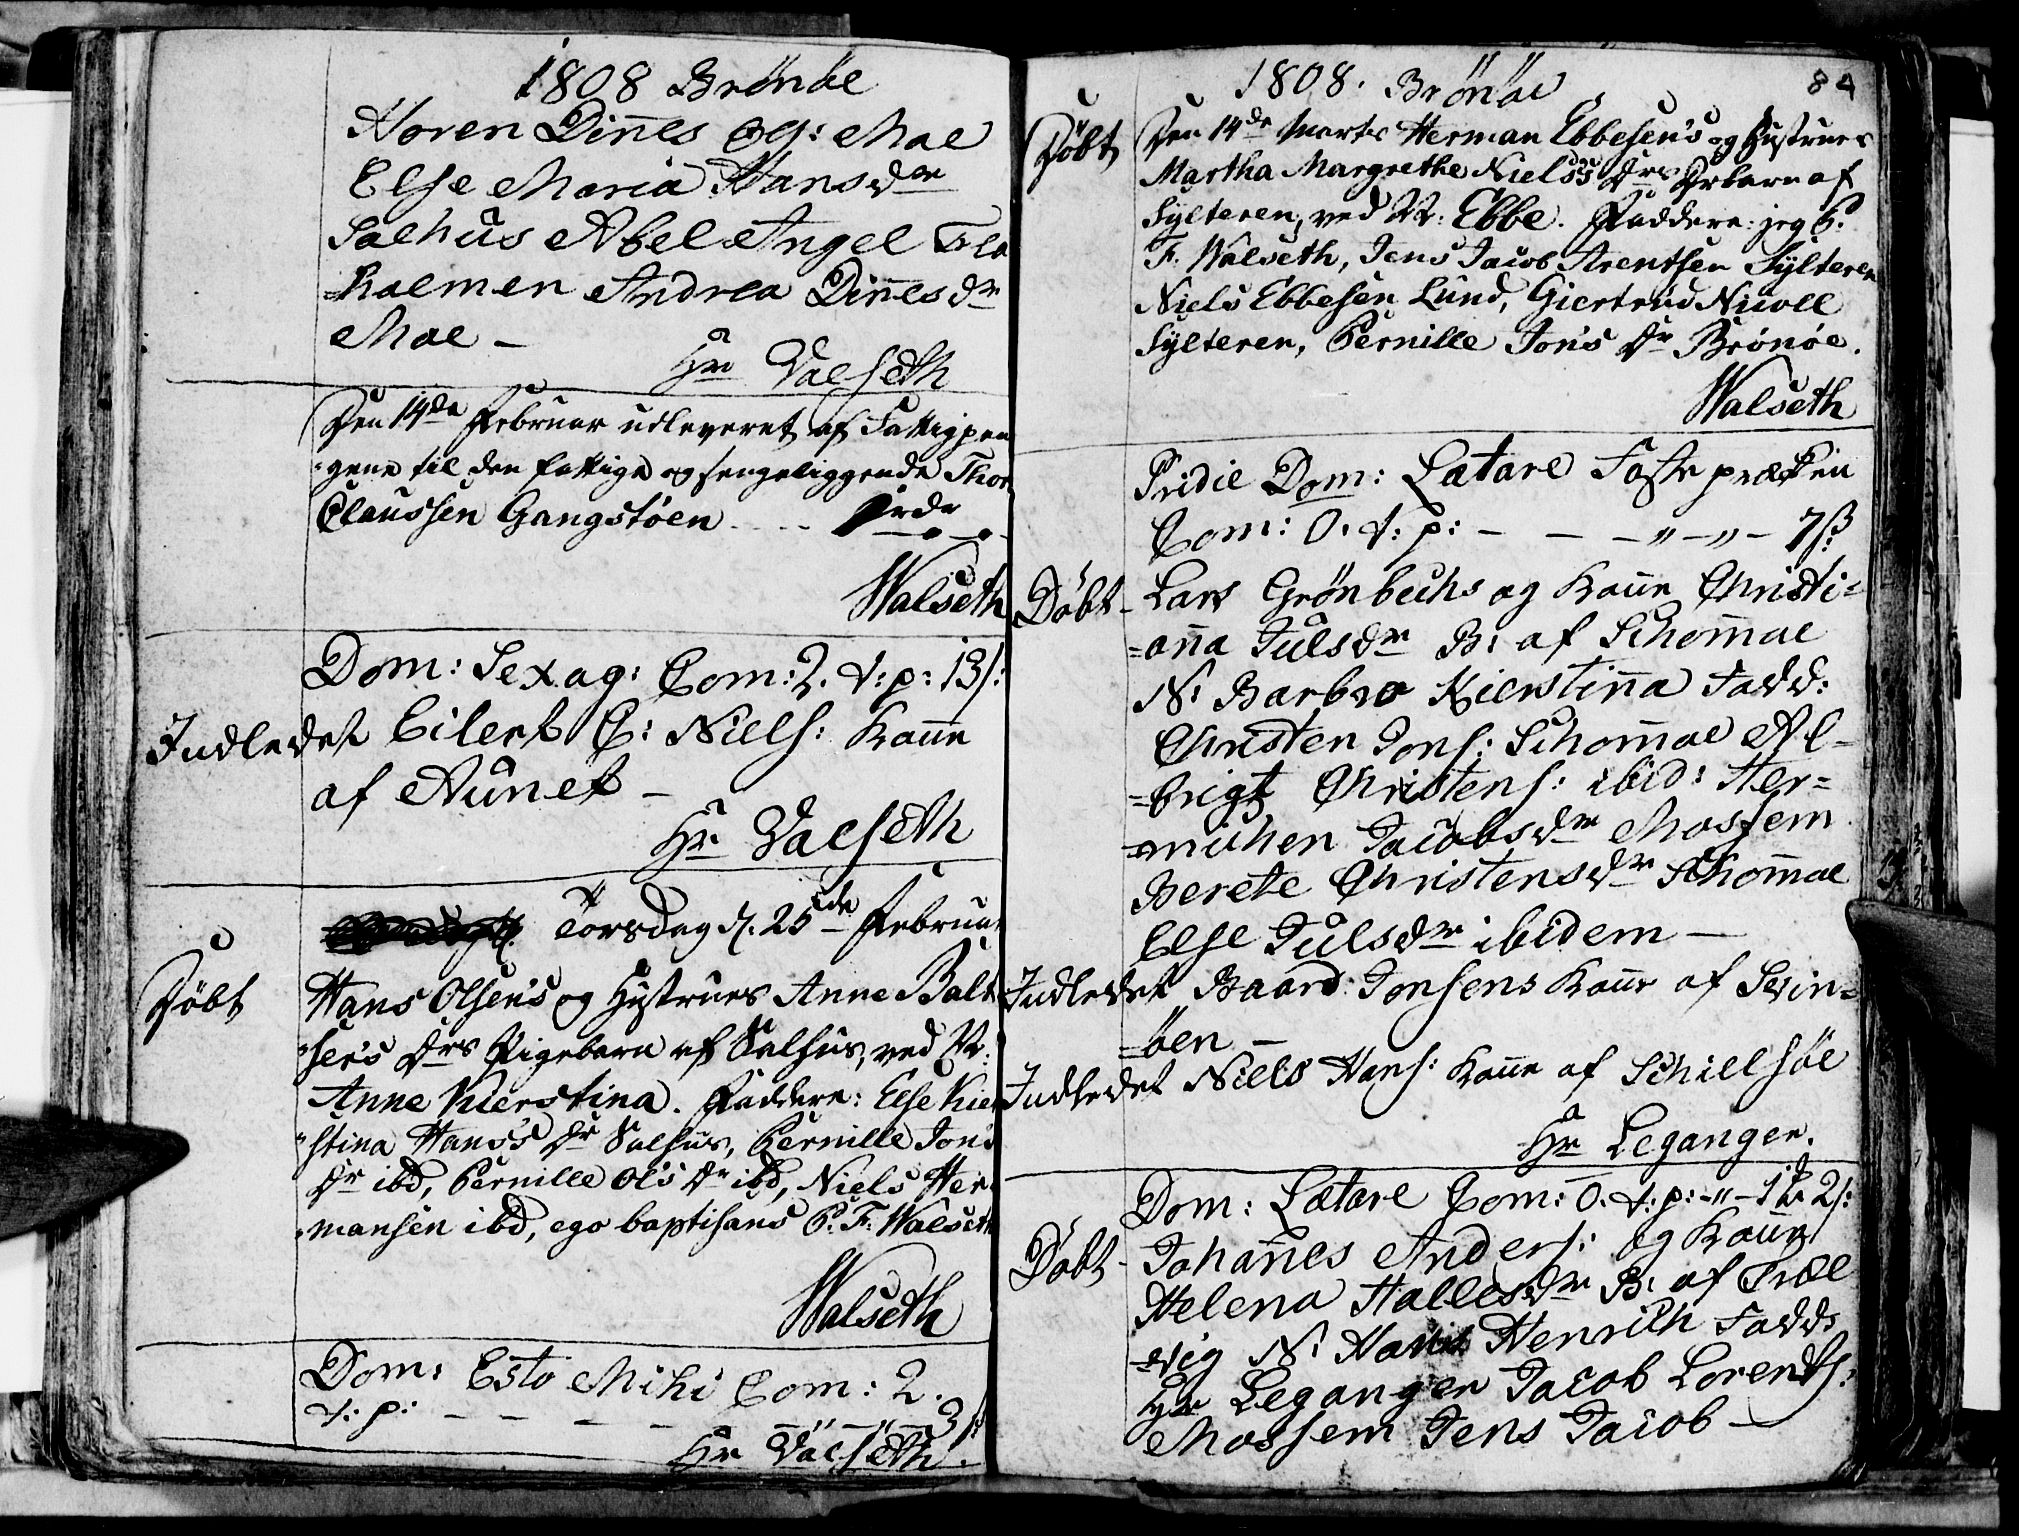 1808 Brönöe
Horen Dines og: Moe
Else Maria Hansdr
Salhus Abel Angel Tilo
=kalmen Andrea Dinesdr
Moe –
Hr Valseth
Den 14de Februar udleveret af Fattigpen
gene til den fattige og sengeliggende Thor
Claussen Gangstøen
Walseth
Dom: Sexag: Com: 2. t: p: 13 s:
Indledet Eilert C: Niels: Kone
af Aunet –
Hr Valseth
Torsdag d. 25de Februar
Döbt
Hans Olsen's og Hustrues Anne Balt
ser's Drs Pigebarn af Salhus, ved N:
Anne Kierstina. Faddere: Else Kier
stina Hans's Dr Salhus, Pernille Jon's
Dr ibd, Pernille Ol's Dr ibd, Niels Her
mansen ibd, ego baptisans P. F. Walseth
Walseth
Dom: Esto Mihi Com: 2.
t: p: – – – – 3 s
Hr Valseth.
1808. Brönöe
84
Döbt
Den 14de Marts Herman Ebbesen's og Hustrues
Martha Margrethe Niels's Drs Drbarn af
Sylteren, ved N: Ebbe. Faddere: jeg P.
F. Walseth, Jens Jacob Arentsen Sylteren
Niels Ebbesen Lund, Giertrud Nicoll
Sylteren, Pernille Jon's Dr Brönöe.
Walseth
Pridie Dom: Lætare Fastepræken
Com: 0. t: p: – – – " – " – 7 ß
Döbt – Lars Grönbechs og Kone Christi=
=anna Julsdr B: af Schomoe
N: Barbro Kierstina Fadd:
Christen Jons: Schomoe Al=
=brigt Christens: ibid: Her=
=michen Jacobsdr Mosfem
Berete Christensdr Schomoe
Else Julsdr ibidem –
Indledet Baard Jonsens Kone af Sevin=
=öen –
Indledet Niels Hans: Kone af Schillsöe
Hr Leganger.
Dom: Lætare Com: 0. t: p: – " – 1 k 2 s:
Döbt – Johanes Anders: og Kone
Helena Hallesdr B: af Træl
=vig N: Hans Henrich Fadd:
Hr Leganger Jacob Lorents:
Mossem Jens Jacob –